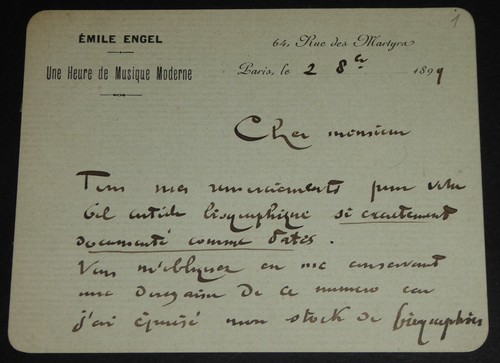 1
ÉMILE ENGEL
Une Heure de Musique Moderne
64, Rue des Martyrs
Paris, le 2 8bre 1899
Cher monsieur
Tous mes remerciements pour votre
bel article biographique si exactement
documenté comme dates.
Vous m'obligerez en me conservant
une douzaine de ce numero car
j'ai épuisé mon stock de biographies